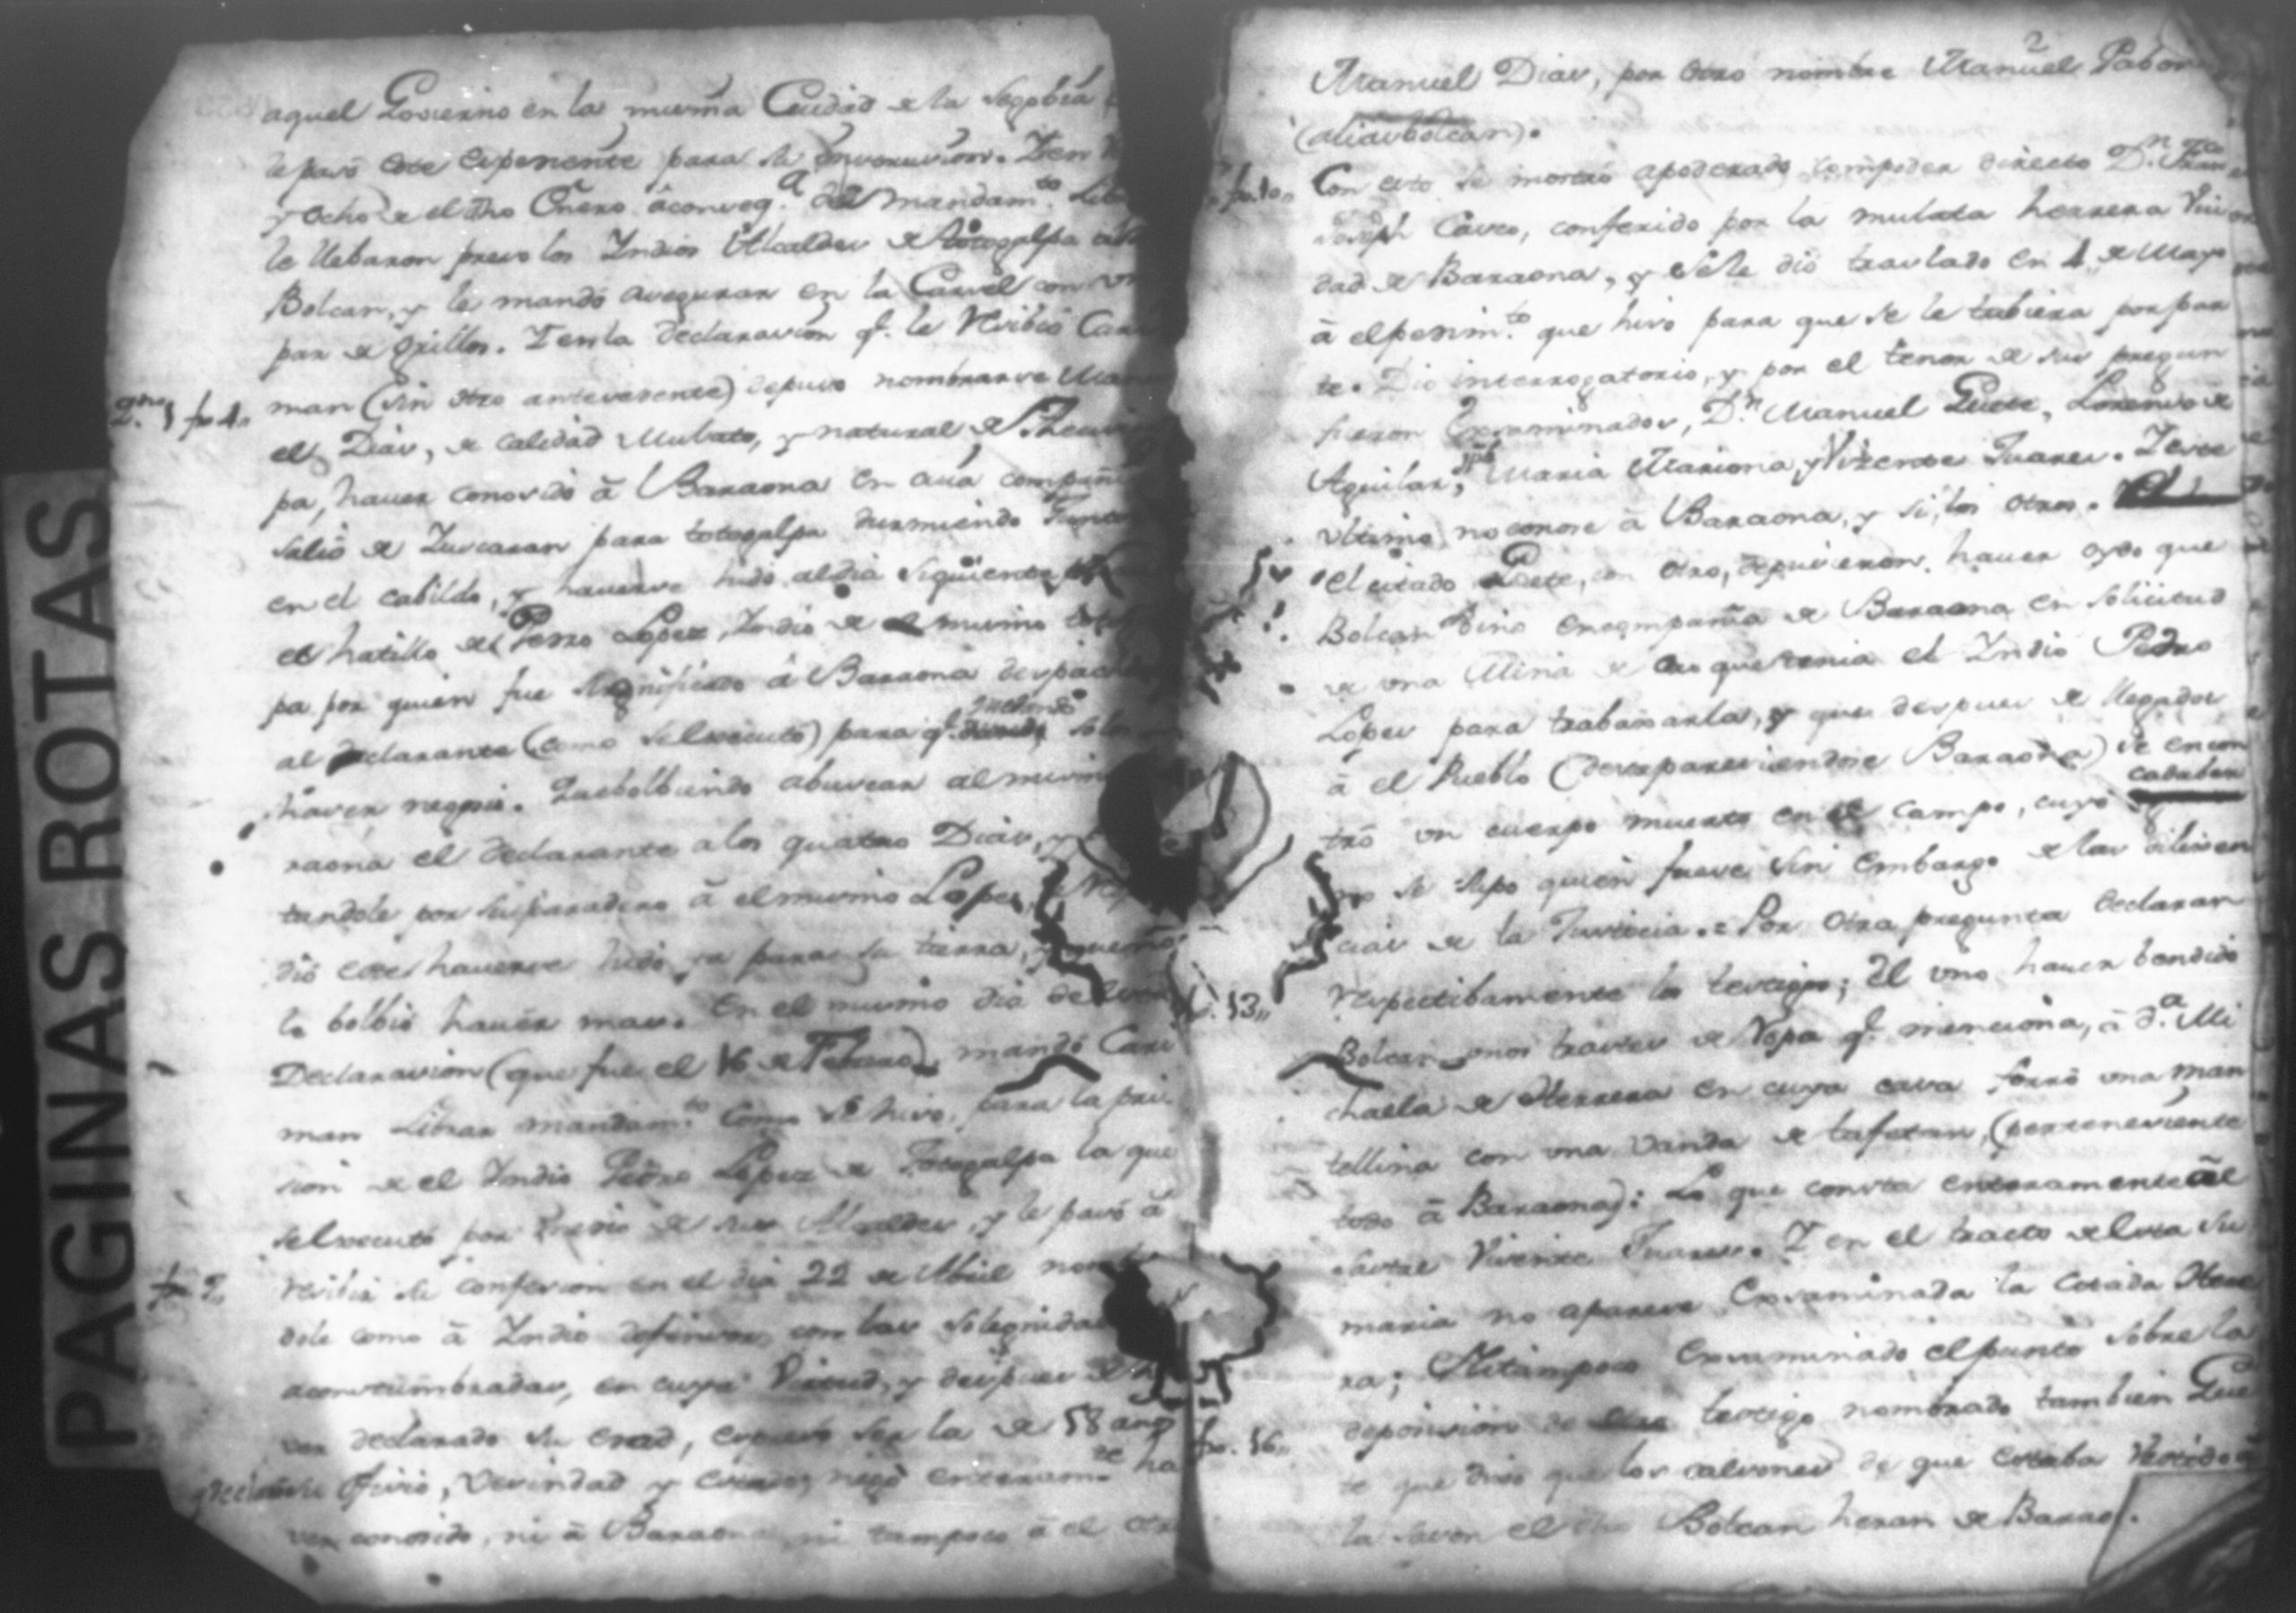 PAGINAS ROTAS
aquel Govierno en la misma Ciudad de la Segobia
le pasó este expeniente para su
y ocho de el dho Enero âconseq.ª del mandam.to
le llebaron preso los Indios Alcaldes de totogalpa
Bolcan, y le mandó asegurar en la Carsel con un
par de Grillos. Y en la declarasion q.e le Resibió Cari
fo. 1.
man (sin otro antesesente) depuso nombrarse Manu
el Dias, de calidad Mulato, y natural de
pa, haver conosido â Baraona en cuia compañi
salió de Yuscaran para totogalpa durmiendo Juntos
en el cabildo, y haverse hido al dia siguiente
el hatillo de Pedro Lopez, Indio de el mismo
pa por quien fue â Baraona despach
al declarante (como selesecutó) para q.e solo
haver negosio. Que bolbiendo abuscar al mismo
raona el declarante a los quatro Dias, y
tandole por su paradero â el mismo Lopez,
dió este haverse hido ya para su tierra, y que no
lo bolbió haver mas. En el mismo dia de
Declarasion (que fue el 16 de Febrero) mandó Cari
man Librar mandam.to como se hiso, para la pri
sion de el Indio Pedro Lopez de Totogalpa la que
selsecutó por medio de sus Alcaldes, y le pasó â
resibir su confesion en el dia 22 de Abril nom
dole como â Indio defensor con las solegnida
acostumbradas, en cuya Virtud, y despues de
ver declarado su edad, expuso ser la de 58 años
Ofisio, Vesindad y estado, negó enteram.te ha
ver conosido, ni â Baraona ni tampoco â el otro
Manuel Dias, por otro nombre Manuel Pabon
(alias bolcan).
fo. 10.
Con esto se mostró apoderado con poder directo D.n Fran.co
Joseph Calvo, conferido por la mulata herrera Viu
dad de Baraona, y se le dió traslado en 4 de Mayo
â el pedim.to que hiso para que se le tubiera por par
te. Dio interrogatorio, y por el tenor de sus pregun
fueron Exsaminados, D.n Manuel Guete, Lorenso de
Aguilar, Maria Mariona, y Visente Juares. Y este
ultimo no conose â Baraona, y si, los otros.
El citado Guete, con otro, depusieron haver oydo que
Bolcan bino encompañia de Baraona en solicitud
de una Mina de Oro que tenia el Indio Pedro
Lopes para trabaxarla, y que despues de llegados
â el Pueblo (desapareciendose Baraona) se encon
tró un cuerpo muerto en el campo, cuyo cadaber
no se supo quien fuese sin embargo de las diligen
cias de la Justicia. Por otra pregunta declaran
fo. 13.
respectibamente los testigos; El uno haver bendido
Bolcan unos trastes de Ropa q.e menciona, â d.ª Mi
chaela de Herrera en cuya casa forró una man
tellina con una Vanda de tafetan, (perteneciente
todo â Baraona): Lo que consta enteramente âel
sastre Visente Juares. Y en el tracto de esta su
maria no aparese Exsaminada la citada Herre
ra; Nitampoco Exsaminado el punto sobre la
fo. 16.
deposision de testigo nombrado tambien Gue
te que dixo que los calsones de que estaba Vestido â
la sason el dho Bolcan heran de Barao.